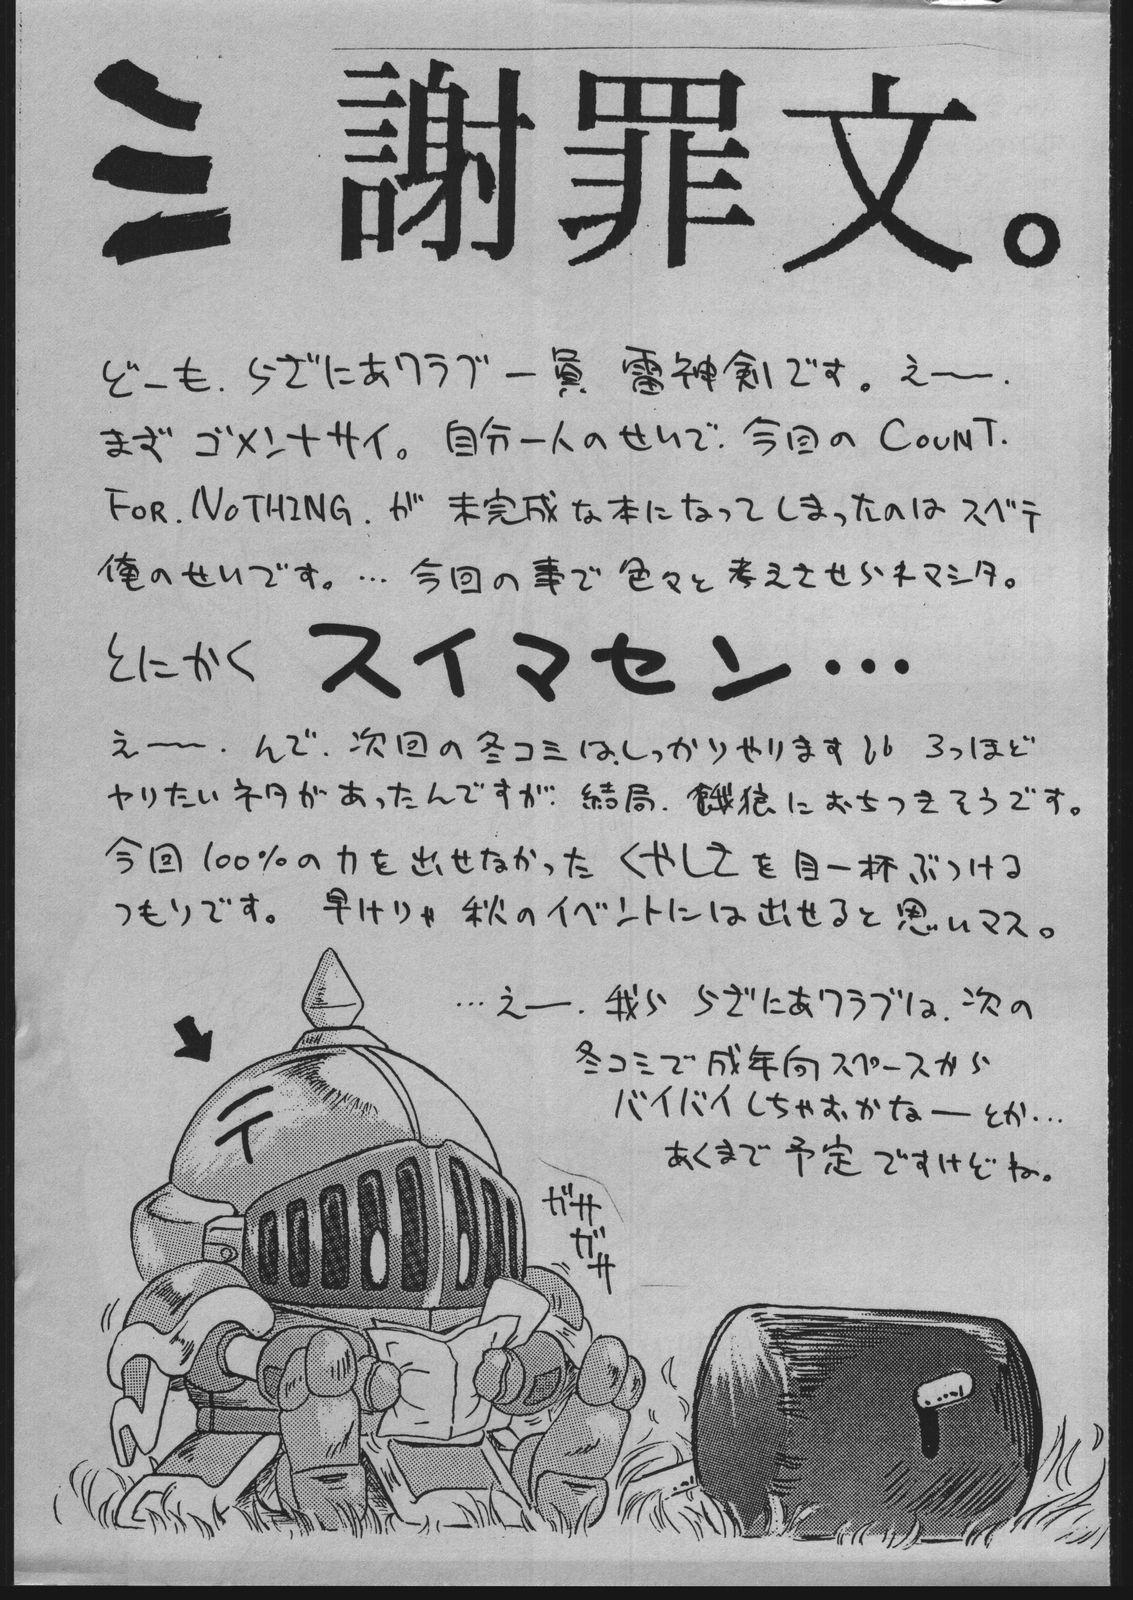 ミ 謝罪文。
どーも、らざにあクラブ一員 雷神剣です。えー〜.
まず ゴメンナサイ。自分一人のせいで、今回の COUNT.
FOR.NOTHING.が 未完成な本になってしまったのはスベテ
俺のせいです。… 今回の事で色々と考えさせらネマシタ。
とにかく スイマセン…
え〜〜.んで、次回の冬コミは、しっかりやります 3つほど
ヤリたいネタがあったんですが、結局、餓狼におちつきそうです。
今回100%の力を出せなかったくやしさを目一杯ぶつける
つもりです。 早けりゃ秋のイベントには出せると思いマス。
…えー.我ら らざにあクラブは、次の
冬コミで成年向スペースから
バイバイしちゃおかなーとか…
あくまで予定ですけどね。
テ
ガサ
ガサ